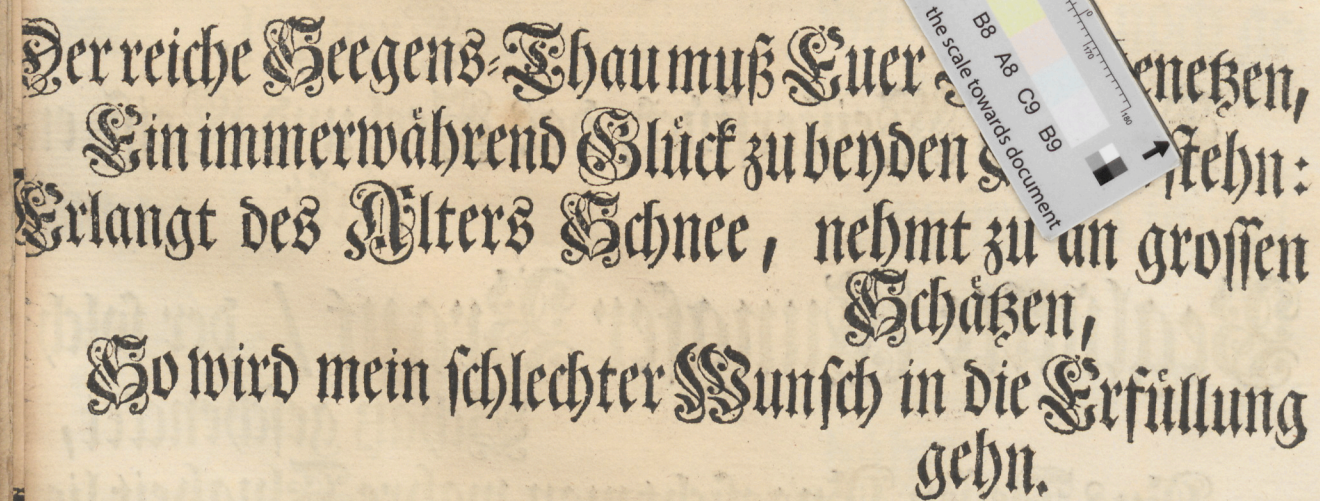 Der reiche Seegens-Thau muß Euer
Ein immerwährend Glück zu beyden
Erlangt des Alters Schnee, nehmt zu an grossen
Schätzen,
So wird mein schlechter Wunsch in die Erfüllung
gehn.
B8 A8 C9 B9
the scale towards document
170
180